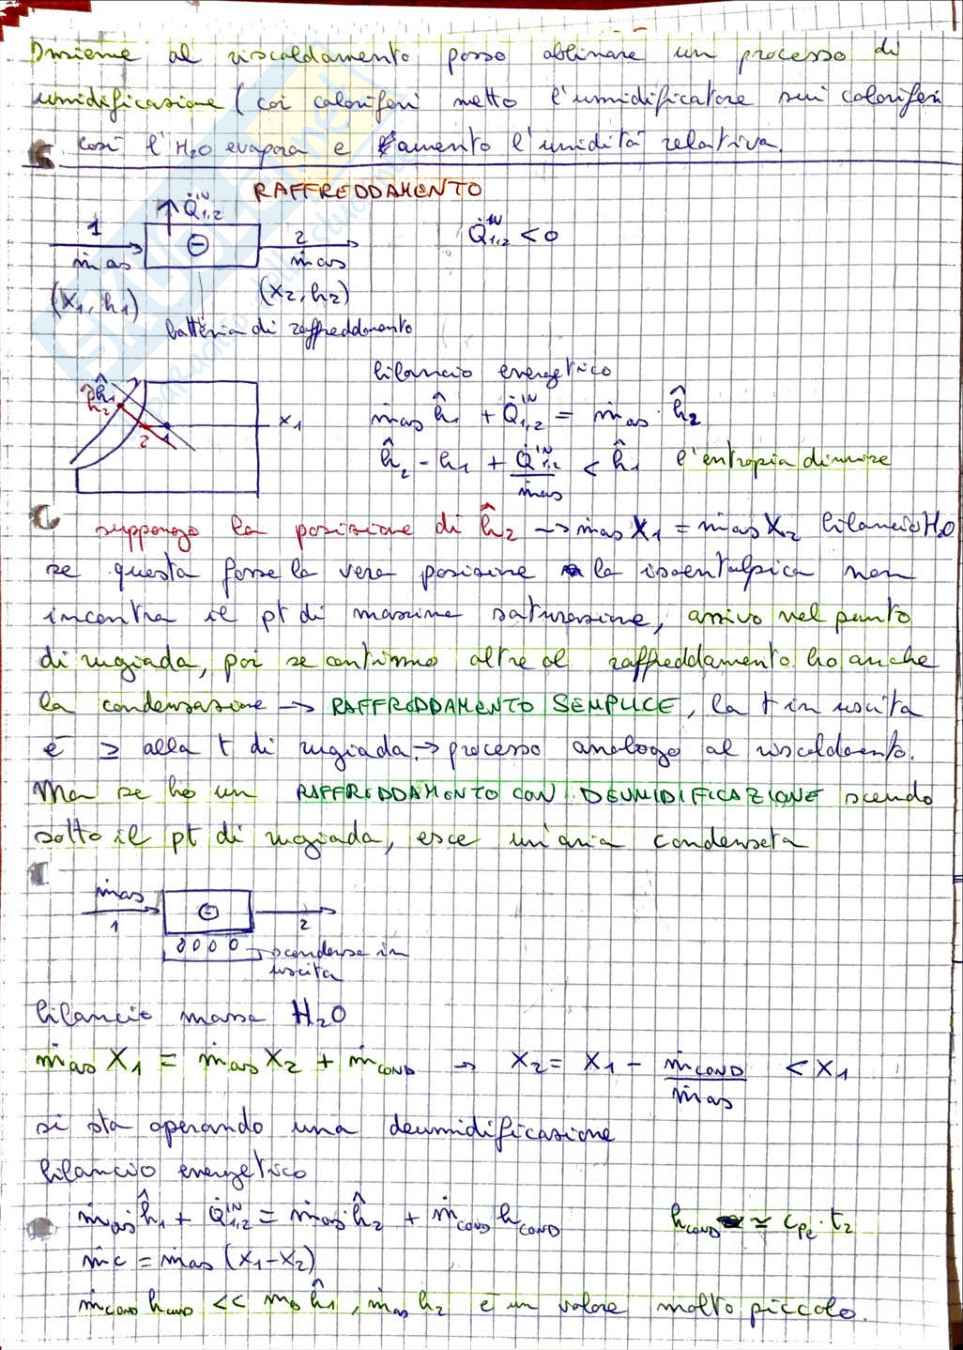 Insieme al riscaldamento posso abbinare un processo di
umidificazione (coi caloriferi metto l'umidificatore sui caloriferi
così l'H₂O evapora e aumento l'umidità relativa.
RAFFREDDAMENTO
Q̇₁,₂ᴵᴺ
1 2 Q̇₁,₂ᴵᴺ < 0
⊖
ṁas ṁas
(x₁, h₁) (x₂, h₂)
batteria di raffreddamento
bilancio energetico
ĥ₁
ĥ₂
ṁas ĥ₁ + Q̇₁,₂ᴵᴺ = ṁas · ĥ₂
x₁
2 1
ĥ₂ - h₁ + Q̇₁,₂ᴵᴺ/ṁas < ĥ₁ l'entropia diminuire
suppongo la posizione di ĥ₂ → ṁas X₁ = ṁas X₂ bilancio H₂O
se questa fosse la vera posizione la isoentalpica non
incontra il pt di massima saturazione, arrivo nel punto
di rugiada, poi se continuo oltre al raffreddamento ho anche
la condensazione → RAFFREDDAMENTO SEMPLICE, la t in uscita
è ≥ alla t di rugiada. → processo analogo al riscaldamento.
Ma se ho un RAFFREDDAMENTO CON DEUMIDIFICAZIONE scendo
sotto il pt di rugiada, esce un'aria condensata
ṁas
⊖
1 2
condensa in
uscita
bilancio massa H₂O
ṁas X₁ = ṁas X₂ + ṁCOND → X₂ = X₁ - ṁCOND/ṁas < X₁
si sta operando una deumidificazione
bilancio energetico
ṁas ĥ₁ + Q̇₁,₂ᴵᴺ = ṁas ĥ₂ + ṁCOND hCOND hCOND ≃ cpe · t₂
ṁc = ṁas (X₁-X₂)
ṁCOND hCOND << ĥ₁, ṁas h₂ è un valore molto piccolo.